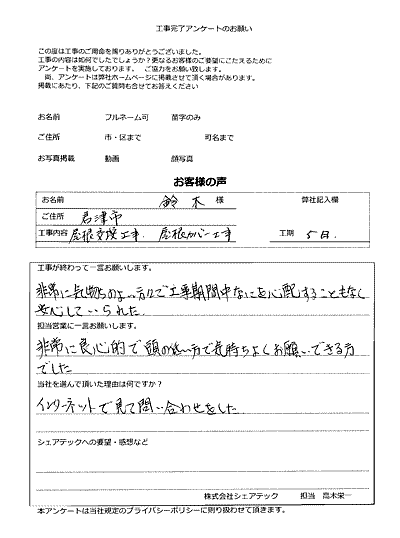 工事完了アンケートのお願い
この度は工事のご用命を賜りありがとうございました。
工事の内容は如何でしたでしょうか？更なるお客様のご要望にこたえるために
アンケートを実施しております。 ご協力をお願い致します。
尚、アンケートは弊社ホームページに掲載させて頂く場合があります。
掲載にあたり、下記のご質問も合せてお答えください
お名前 フルネーム可 苗字のみ
ご住所 市・区まで 町名まで
お写真掲載 動画 顔写真
お客様の声
お名前 鈴木 様 弊社記入欄
ご住所 君津市
工事内容 屋根交換工事、屋根カバー工事 工期 5日
工事が終わって一言お願いします。
非常に気持ちのよい方々で工事期間中なにも心配することもなく
安心していられた
担当営業に一言お願いします。
非常に良心的で頭の低い方で気持ちよくお願いできる方
でした
当社を選んで頂いた理由は何ですか？
インターネットで見て問い合わせをした
シェアテックへの要望・感想など
株式会社シェアテック 担当 高木栄一
本アンケートは当社規定のプライバシーポリシーに則り扱わせて頂きます。